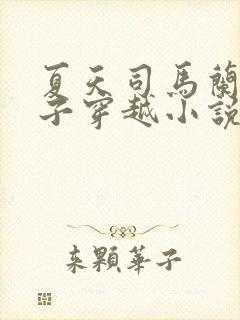 夏天司馬蘭
子穿越小說
来顆華子